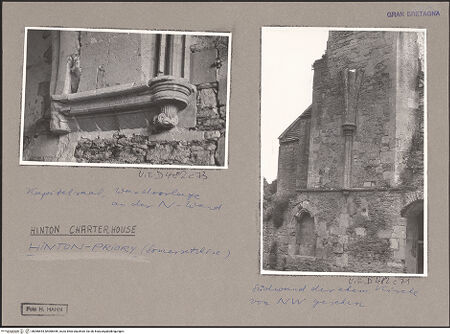 GRAN BRETAGNA
U.s.D482c73
Kapitelsaal, Wandvorlage
an der N-Wand
HINTON CHARTERHOUSE
HINTON-PRIORY (Somersetshire)
U.s.D482c71
Südwand der ehem. Kirche
von NW gesehen
Foto H. HAHN